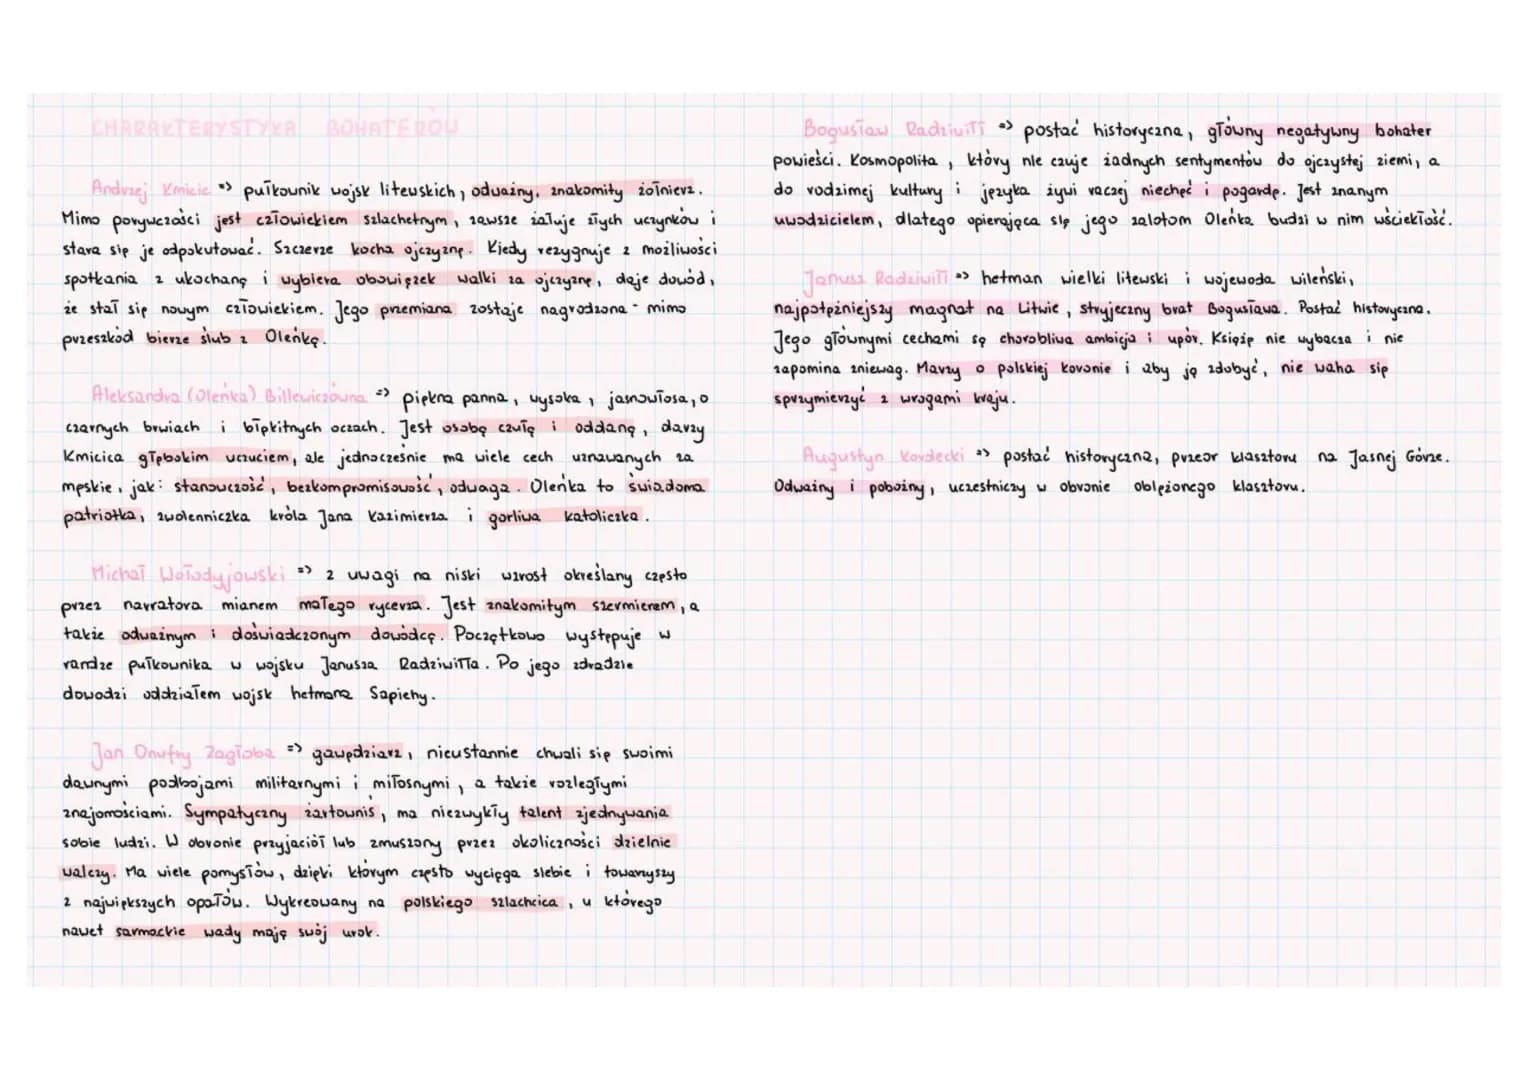 CHARAKTERYSTYKA BOHATERÓW
Andrzej Kmicic => pułkownik wojsk litewskich, odważny, znakomity żołnierz.
Mimo porywczości jest człowiekiem szlachetnym, zawsze żałuje złych uczynków i
stara się je odpokutować. Szczerze kocha ojczyznę. Kiedy rezygnuje z możliwości
spotkania z ukochaną i wybiera obowiązek walki za ojczyznę, daje dowód,
że stał się nowym człowiekiem. Jego przemiana zostaje nagrodzona - mimo
przeszkód bierze ślub z Oleńką.
Aleksandra (Oleńka) Billewiczówna => piękna panna, wysoka, jasnowłosa, o
czarnych brwiach i błękitnych oczach. Jest osobą czułą i oddaną, darzy
Kmicica głębokim uczuciem, ale jednocześnie ma wiele cech uznawanych za
męskie, jak: stanowczość, bezkompromisowość, odwaga. Oleńka to świadoma
patriotka, zwolenniczka króla Jana Kazimierza i gorliwa katoliczka.
Michał Wołodyjowski => z uwagi na niski wzrost określany często
przez narratora mianem małego rycerza. Jest znakomitym szermierzem, a
także odważnym i doświadczonym dowódcą. Początkowo występuje w
randze pułkownika w wojsku Janusza Radziwiłła. Po jego zdradzie
dowodzi oddziałem wojsk hetmana Sapiehy.
Jan Onufry Zagłoba => gawędziarz, nieustannie chwali się swoimi
dawnymi podbojami militarnymi i miłosnymi, a także rozległymi
znajomościami. Sympatyczny żartowniś, ma niezwykły talent zjednywania
sobie ludzi. W obronie przyjaciół lub zmuszony przez okoliczności dzielnie
walczy. Ma wiele pomysłów, dzięki którym często wyciąga siebie i towarzyszy
z największych opałów. Wykreowany na polskiego szlachcica, u którego
nawet sarmackie wady mają swój urok.
Bogusław Radziwiłł => postać historyczna, główny negatywny bohater
powieści. Kosmopolita, który nie czuje żadnych sentymentów do ojczystej ziemi, a
do rodzimej kultury i języka żywi raczej niechęć i pogardę. Jest znanym
uwodzicielem, dlatego opierająca się jego zalotom Oleńka budzi w nim wściekłość.
Janusz Radziwiłł => hetman wielki litewski i wojewoda wileński,
najpotężniejszy magnat na Litwie, stryjeczny brat Bogusława. Postać historyczna.
Jego głównymi cechami są chorobliwa ambicja i upór. Książę nie wybacza i nie
zapomina zniewag. Marzy o polskiej koronie i aby ją zdobyć, nie waha się
sprzymierzyć z wrogami kraju.
Augustyn Kordecki => postać historyczna, przeor klasztoru na Jasnej Górze.
Odważny i pobożny, uczestniczy w obronie oblężonego klasztoru.